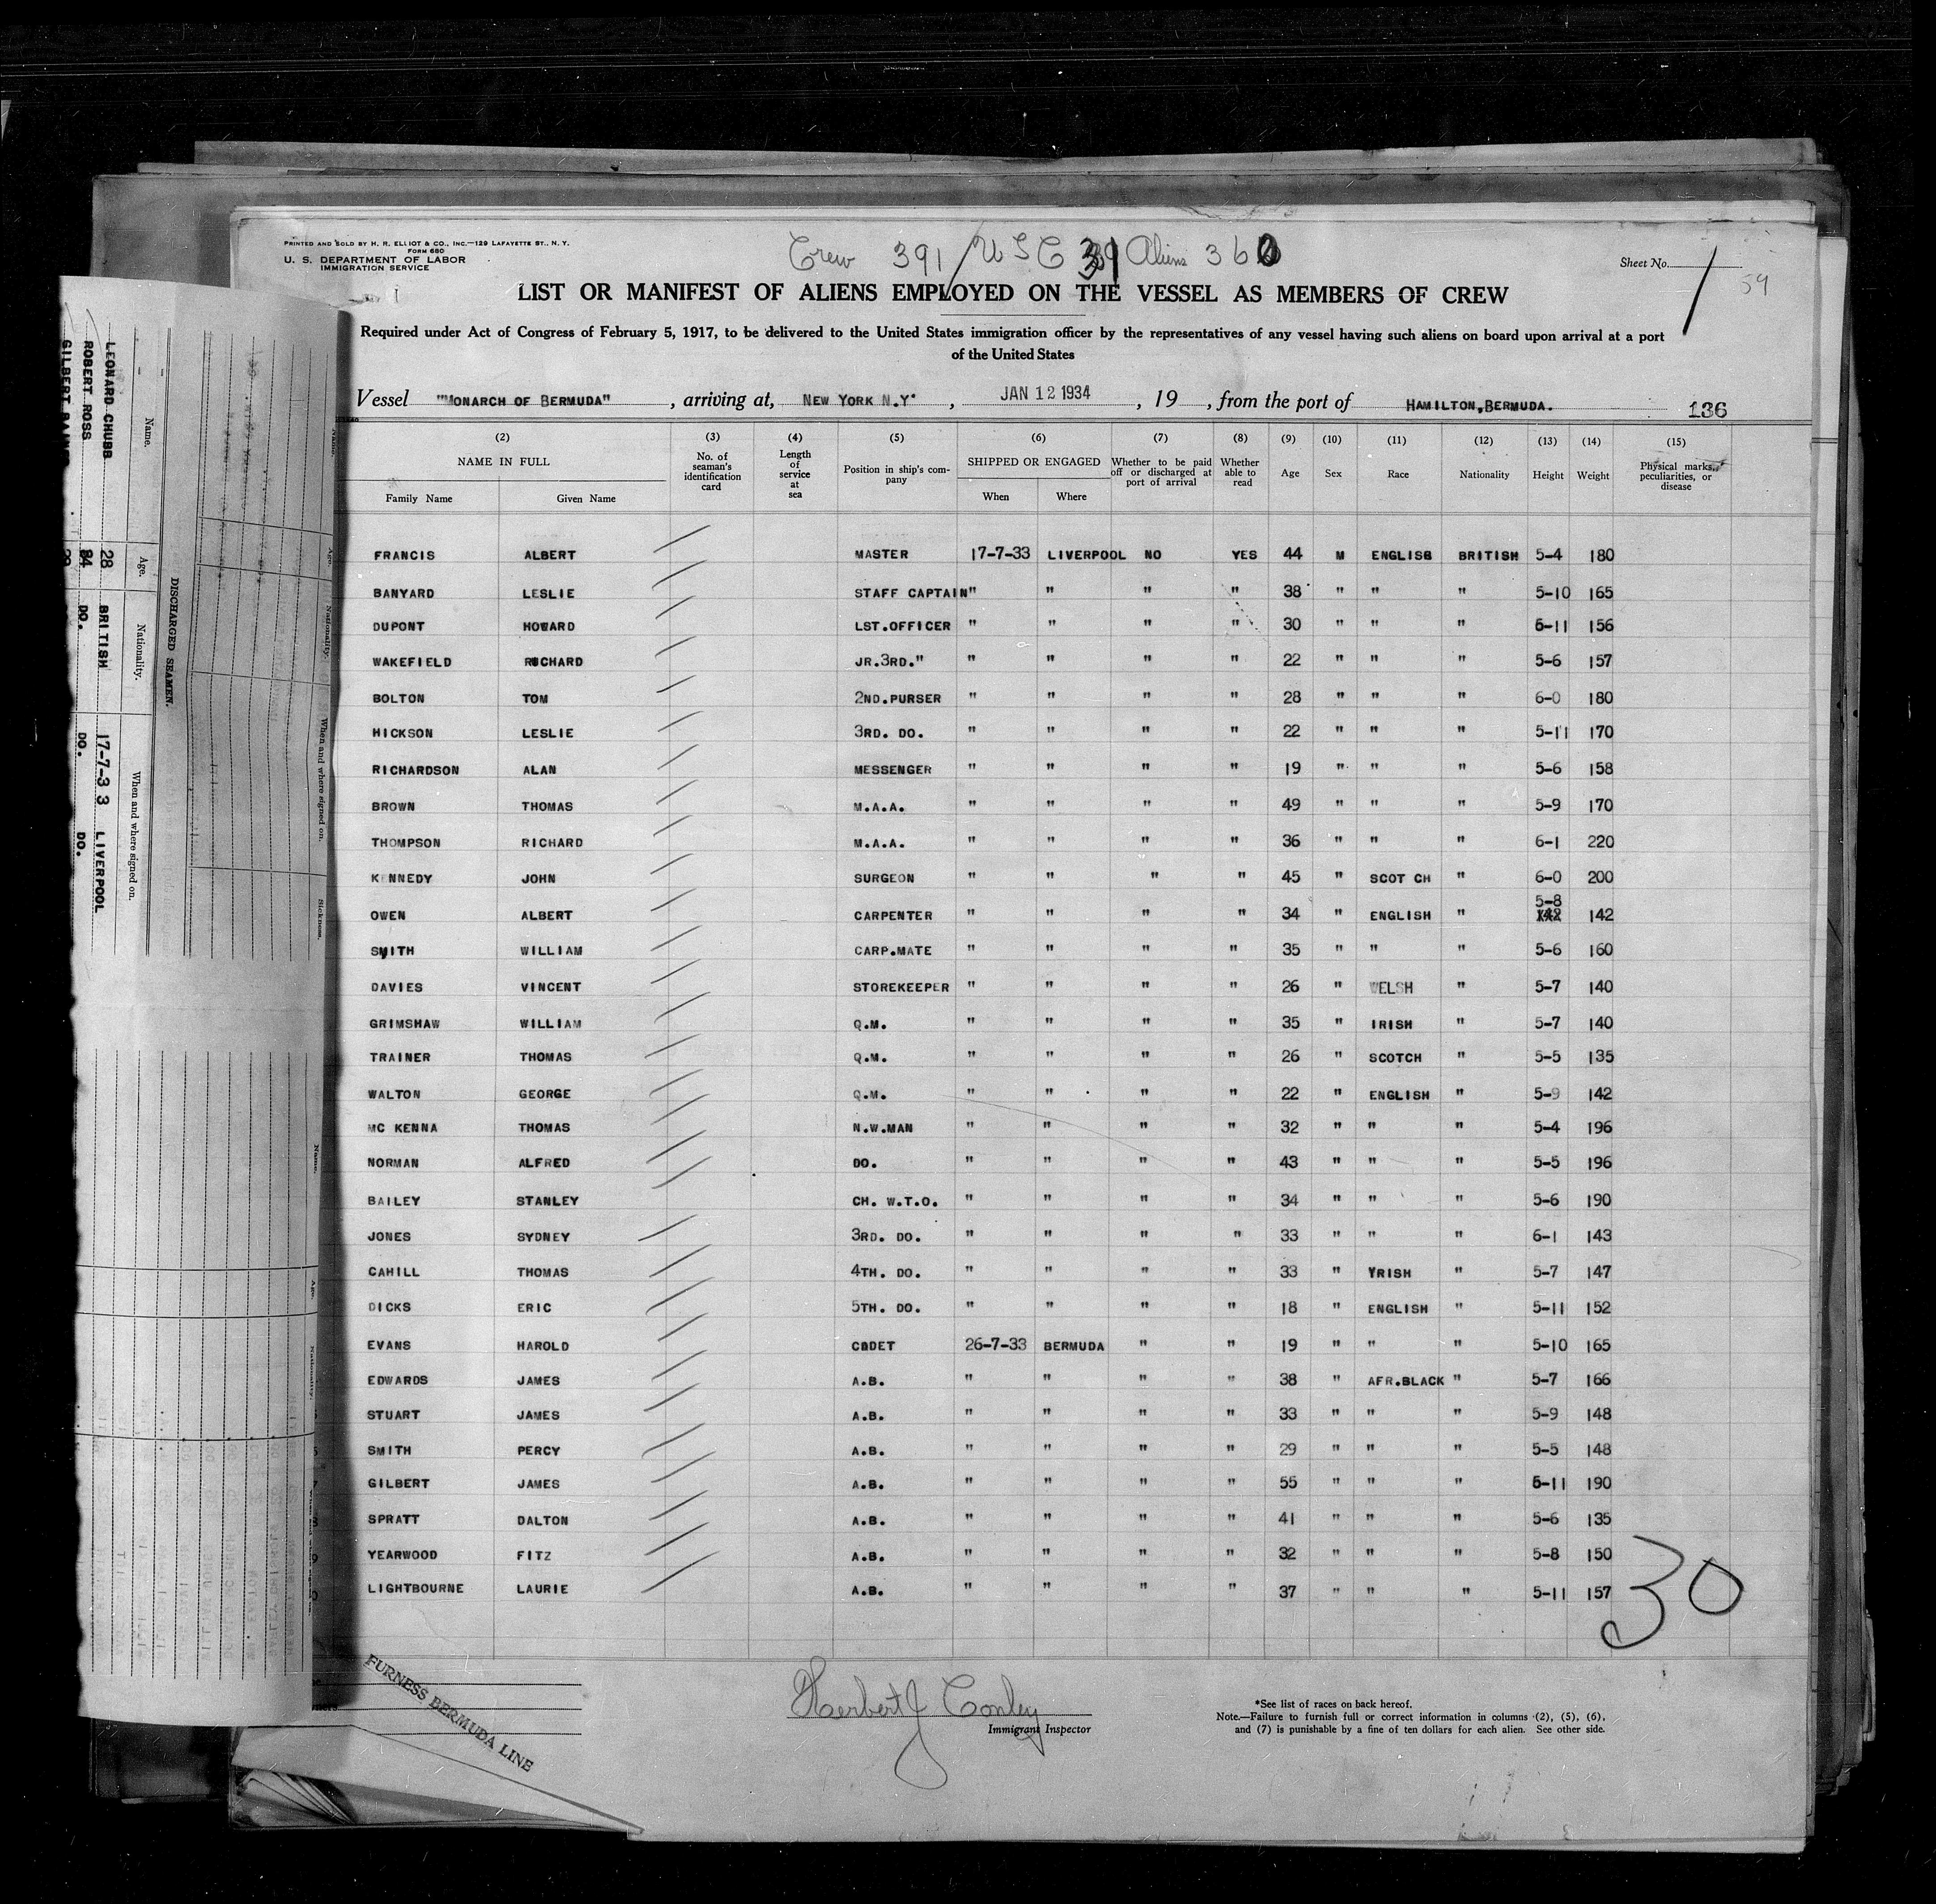 PRINTED AND SOLD BY H. R. ELLIOT & CO., INC.—129 LAFAYETTE ST., N. Y.
FORM 680
U. S. DEPARTMENT OF LABOR
IMMIGRATION SERVICE
Crew 391 / USC 31 Aliens 360
Sheet No. 1
59
LIST OR MANIFEST OF ALIENS EMPLOYED ON THE VESSEL AS MEMBERS OF CREW
Required under Act of Congress of February 5, 1917, to be delivered to the United States immigration officer by the representatives of any vessel having such aliens on board upon arrival at a port
of the United States
Vessel "MONARCH OF BERMUDA", arriving at, NEW YORK N.Y., JAN 12 1934, 19 , from the port of HAMILTON, BERMUDA. 136
(2) (3) (4) (5) (6) (7) (8) (9) (10) (11) (12) (13) (14) (15)
NAME IN FULL No. of seaman's identification card Length of service at sea Position in ship's company SHIPPED OR ENGAGED Whether to be paid off or discharged at port of arrival Whether able to read Age Sex Race Nationality Height Weight Physical marks, peculiarities, or disease
Family Name Given Name When Where
FRANCIS ALBERT MASTER 17-7-33 LIVERPOOL NO YES 44 M ENGLISB BRITISH 5-4 180
BANYARD LESLIE STAFF CAPTAIN " " " " 38 " " " 5-10 165
DUPONT HOWARD LST.OFFICER " " " " 30 " " " 5-11 156
WAKEFIELD RICHARD JR.3RD." " " " " 22 " " " 5-6 157
BOLTON TOM 2ND.PURSER " " " " 28 " " " 6-0 180
HICKSON LESLIE 3RD. DO. " " " " 22 " " " 5-11 170
RICHARDSON ALAN MESSENGER " " " " 19 " " " 5-6 158
BROWN THOMAS M.A.A. " " " " 49 " " " 5-9 170
THOMPSON RICHARD M.A.A. " " " " 36 " " " 6-1 220
KENNEDY JOHN SURGEON " " " " 45 " SCOT CH " 6-0 200
OWEN ALBERT CARPENTER " " " " 34 " ENGLISH " 5-8 142
SMITH WILLIAM CARP.MATE " " " " 35 " " " 5-6 160
DAVIES VINCENT STOREKEEPER " " " " 26 " WELSH " 5-7 140
GRIMSHAW WILLIAM Q.M. " " " " 35 " IRISH " 5-7 140
TRAINER THOMAS Q.M. " " " " 26 " SCOTCH " 5-5 135
WALTON GEORGE Q.M. " " " " 22 " ENGLISH " 5-9 142
MC KENNA THOMAS N.W.MAN " " " " 32 " " " 5-4 196
NORMAN ALFRED DO. " " " " 43 " " " 5-5 196
BAILEY STANLEY CH. W.T.O. " " " " 34 " " " 5-6 190
JONES SYDNEY 3RD. DO. " " " " 33 " " " 6-1 143
CAHILL THOMAS 4TH. DO. " " " " 33 " YRISH " 5-7 147
DICKS ERIC 5TH. DO. " " " " 18 " ENGLISH " 5-11 152
EVANS HAROLD CADET 26-7-33 BERMUDA " " 19 " " " 5-10 165
EDWARDS JAMES A.B. " " " " 38 " AFR.BLACK " 5-7 166
STUART JAMES A.B. " " " " 33 " " " 5-9 148
SMITH PERCY A.B. " " " " 29 " " " 5-5 148
GILBERT JAMES A.B. " " " " 55 " " " 5-11 190
SPRATT DALTON A.B. " " " " 41 " " " 5-6 135
YEARWOOD FITZ A.B. " " " " 32 " " " 5-8 150
LIGHTBOURNE LAURIE A.B. " " " " 37 " " " 5-11 157
30
FURNESS BERMUDA LINE
Herbert J Conley
Immigrant Inspector
*See list of races on back hereof.
Note.—Failure to furnish full or correct information in columns (2), (5), (6),
and (7) is punishable by a fine of ten dollars for each alien. See other side.
DISCHARGED SEAMEN.
Name. Age. Nationality. When and where signed on.
LEONARD CHUBB 28 BRITISH 17-7-33 LIVERPOOL
ROBERT ROSS 34 DO. DO. DO.
Name. Age. Nationality. When and where signed on. Sickness.